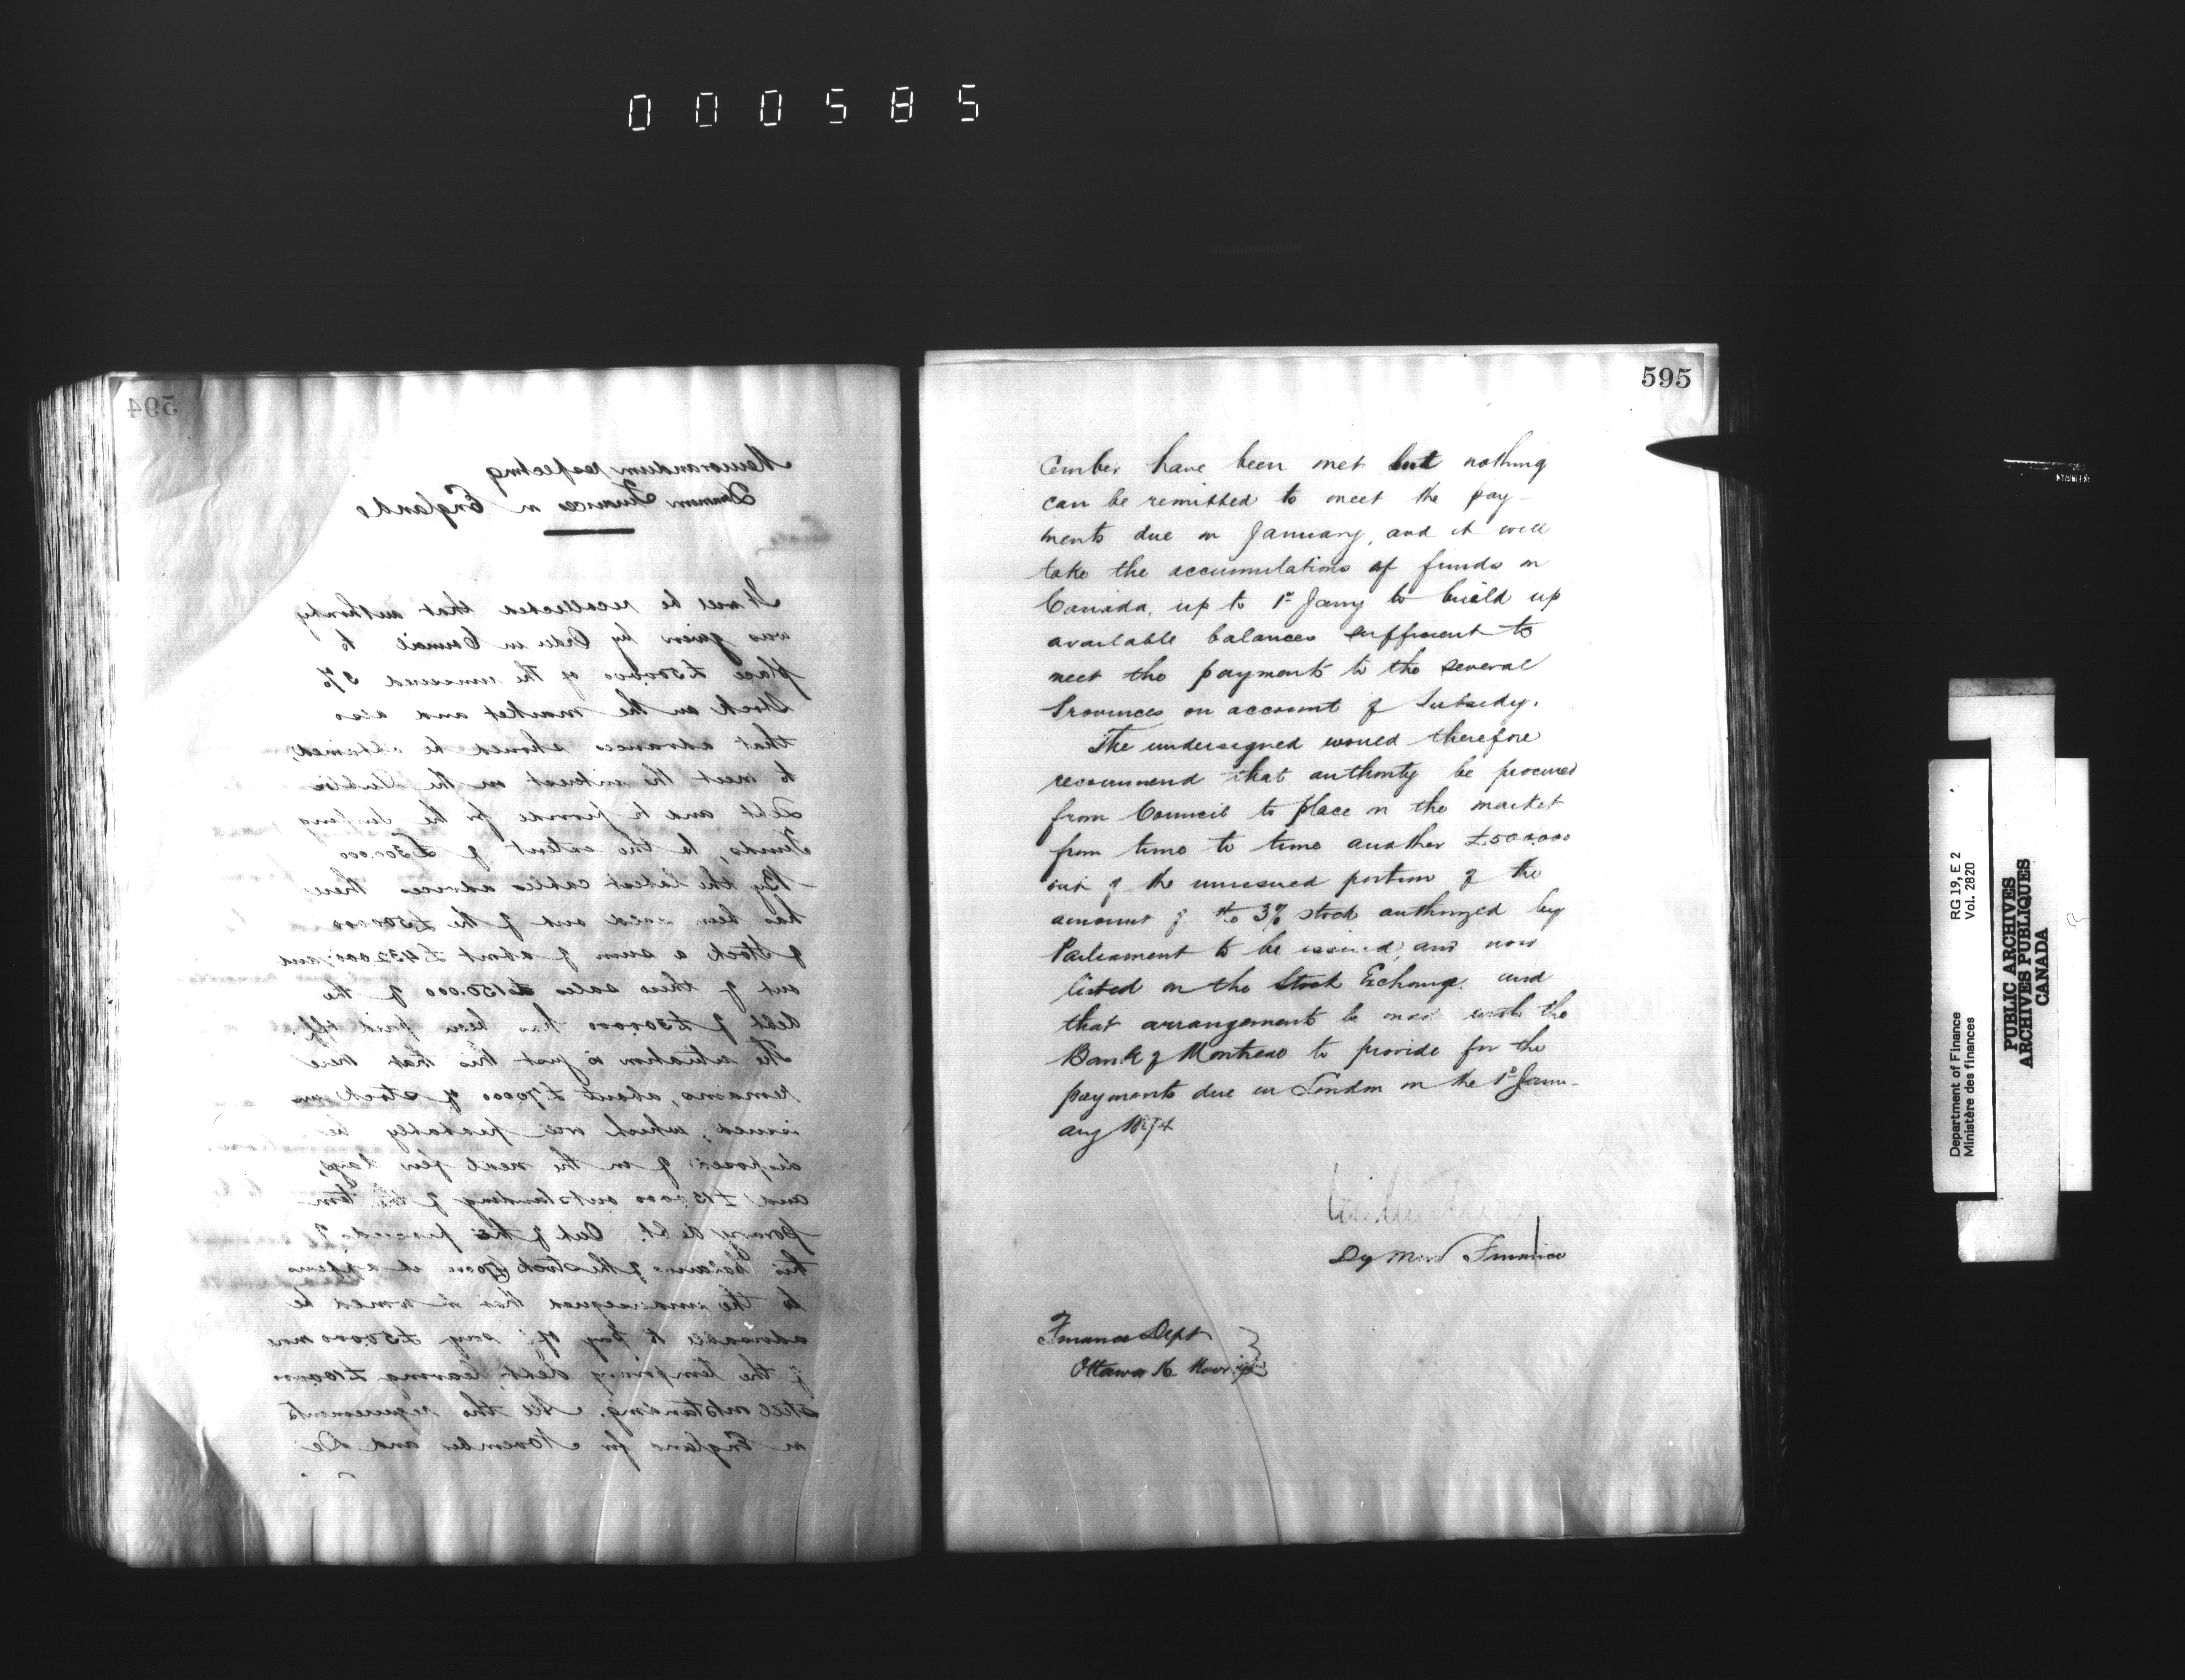 000585
594
Memorandum respecting
Dominion Finances in England
It will be recollected that authority
was given by Order in Council to
place £500,000 of the unissued 3%
Stock on the market and also
that advances should be obtained,
to meet the interest on the Public
Debt and to provide for the Sinking
Funds, to the extent of £300.000
By the latest cable advices there
has been sold out of the £500000
of Stock a sum of about £432000 and
out of these sales £150.000 of the
debt of £300000 has been paid off.
The situation is just this that there
remains, about £70000 of stock un
issued, which will probably be
disposed of in the next few days,
and £150000 outstanding of the tem-
porary debt. Out of the proceeds of
this balance of the stock £70000 it appears
to the undersigned that it would be
advisable to pay off say £50000 more
of the temporary debt leaving £100000
still outstanding. All the requirements
in England for November and De
595
cember have been met but nothing
can be remitted to meet the pay-
ments due in January, and it will
take the accumulations of funds in
Canada, up to 1st Jany to build up
available balances sufficient to
meet the payments to the several
Provinces on account of Subsidy.
The undersigned would therefore
recommend that authority be procured
from Council to place on the market
from time to time another £500.000
out of the unissued portion of the
amount of the 3% stock authorized by
Parliament to be issued, and now
listed on the Stock Exchange. and
that arrangements be made with the
Bank of Montreal to provide for the
payments due in London on the 1st Janu-
ary 1894
Dy Min Finance
Finance Dept
Ottawa 16 Nov
Department of Finance
Ministère des finances
RG 19, E 2
Vol. 2820
PUBLIC ARCHIVES
ARCHIVES PUBLIQUES
CANADA